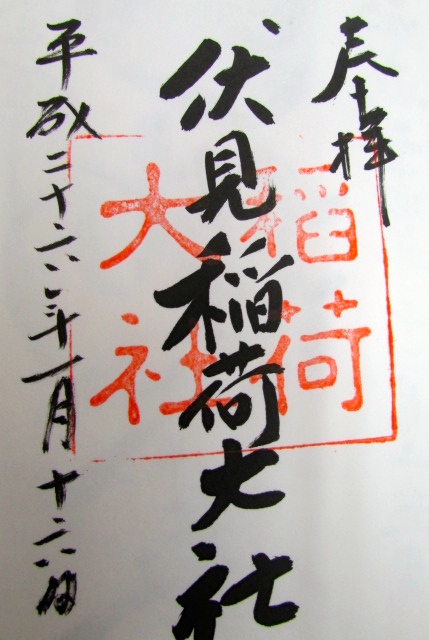 奉拝
伏見稲荷大社
平成二十六年十一月十六日
稲荷
大社